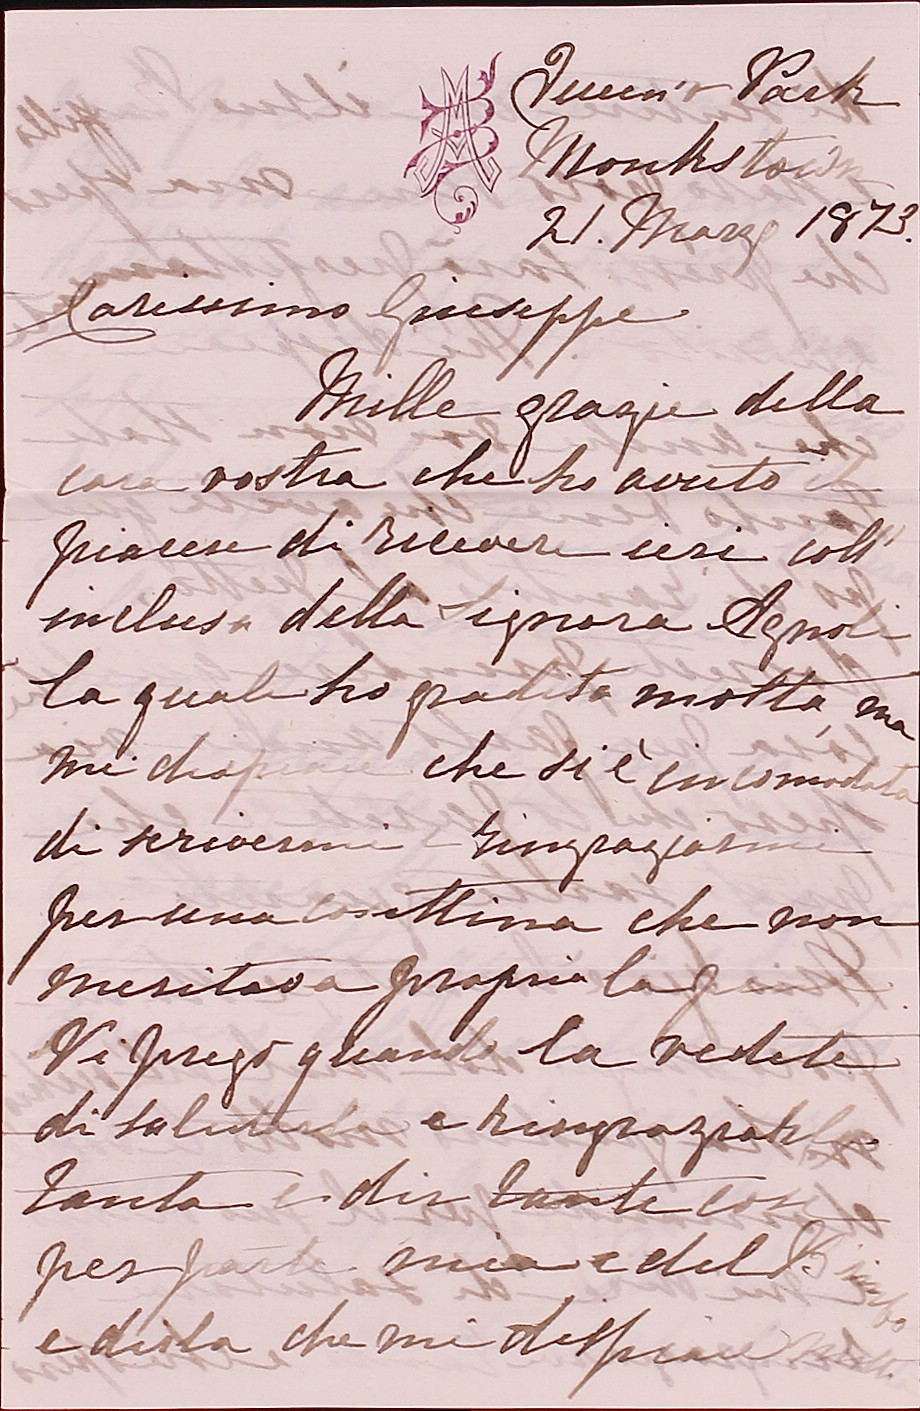 Queen's Park
Monkstown
21. Marzo 1873.
Carissimo Giuseppe
Mille grazie della
cara vostra che ho avuto il
piacere di ricevere ieri coll'
inclusa della Signora Agnoli
la quale ho gradita molto, ma
mi dispiace che si è incomodata
di scrivermi e ringraziarmi
per una cosettina che non
meritava propria la
Vi prego quando la vedete
di salutarla e ringraziarla
tanto e dir tante cose
per parte mia e del Bimbo
e dirla che mi dispiace molto